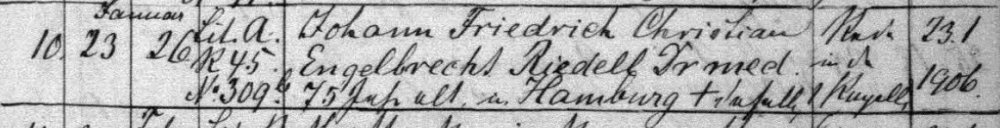 Januar
10. 23 26 Lit. A. Johann Friedrich Christian 23.1
R 45. Engelbrecht Riedell Dr med. in d 1906.
No 309 b 75 Jahr alt. a. Hamburg † Kapelle